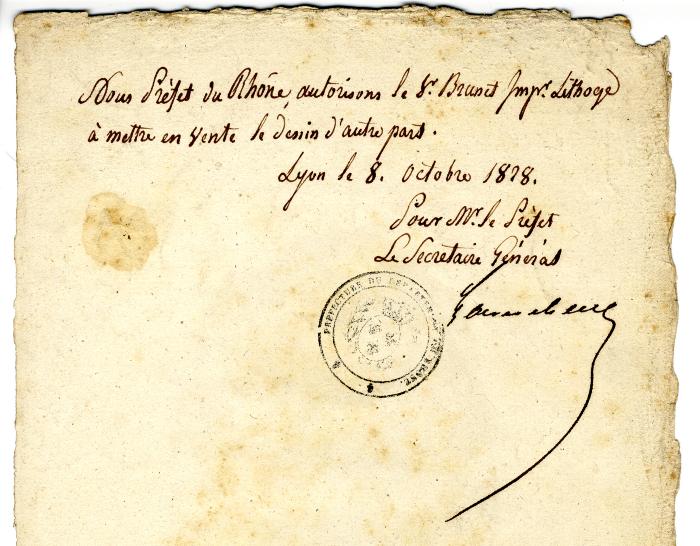 Nous Préfet du Rhône, autorisons le Sr. Brunet Impr. Lithogr
à mettre en vente le dessin d'autre part.
Lyon le 8. Octobre 1828.
Pour Mr. le Préfet
Le Secretaire Général
PREFECTURE DU DEPARTEM. DU RHONE.